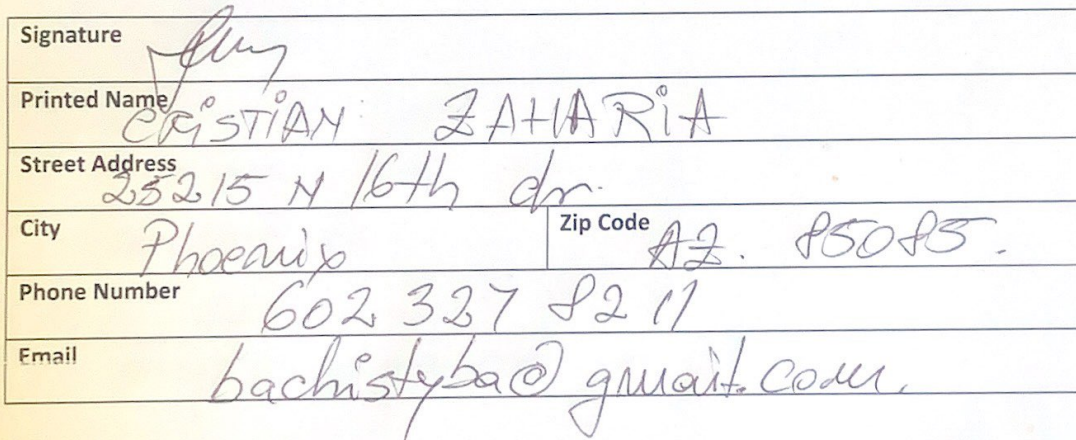 Signature
Printed Name CRiSTIAN ZAHARiA
Street Address 25215 N 16th dr.
City Phoenix Zip Code AZ. 85085.
Phone Number 602 327 8211
Email bachistyba@gmail.com.